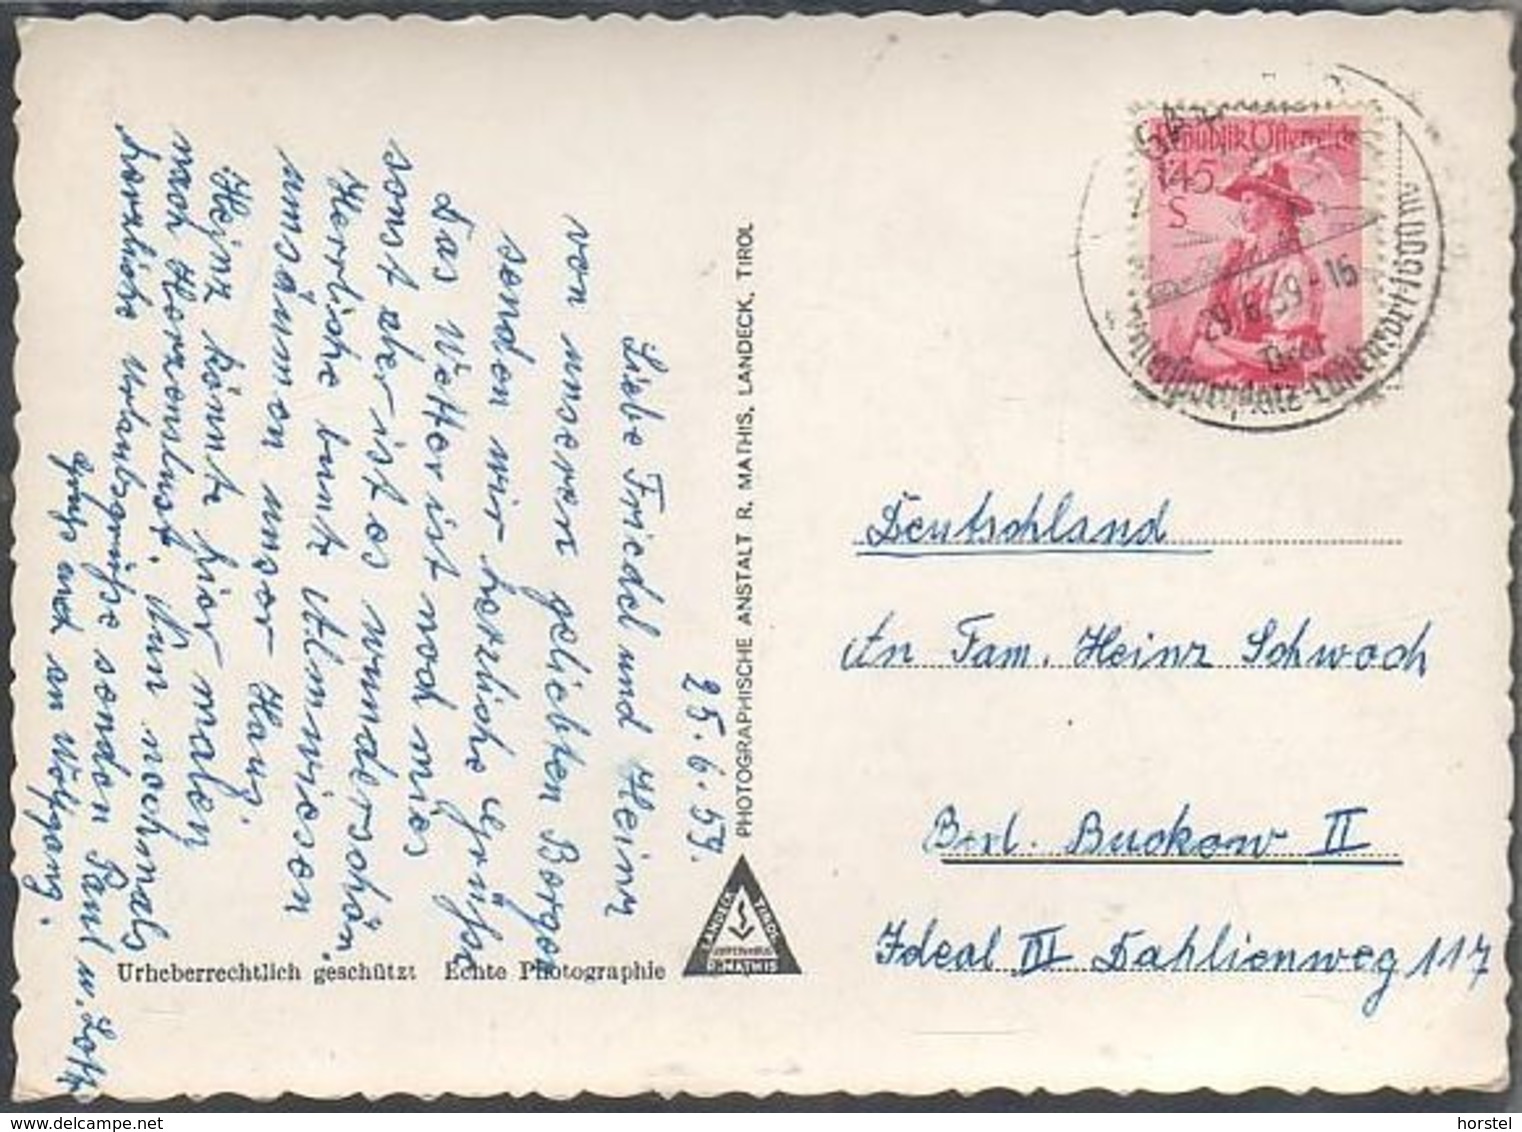 25.6.59.
Liebe Friedel und Heinz
von unseren geliebten Bergen
senden wir herzliche Grüße
das Wetter ist noch mies
sonst aber ist es wunderschön.
Herrliche bunte Almwiesen
umsäumen unser Haus.
Heinz könnte hier malen
nach Herzenslust. Nun nochmals
herzliche Urlaubsgrüße senden Paul u. Lotte
Gruß auch an Wolfgang.
PHOTOGRAPHISCHE ANSTALT R. MATHIS, LANDECK, TIROL
LANDECK TIROL
R. MATHIS
Urheberrechtlich geschützt Echte Photographie
Republik Österreich
1·45
S
29.6.59-16
Tirol
1600 m
Deutschland
An Fam. Heinz Schwoch
Berl. Buckow II
Ideal III Dahlienweg 117
horstel
www.delcampe.net